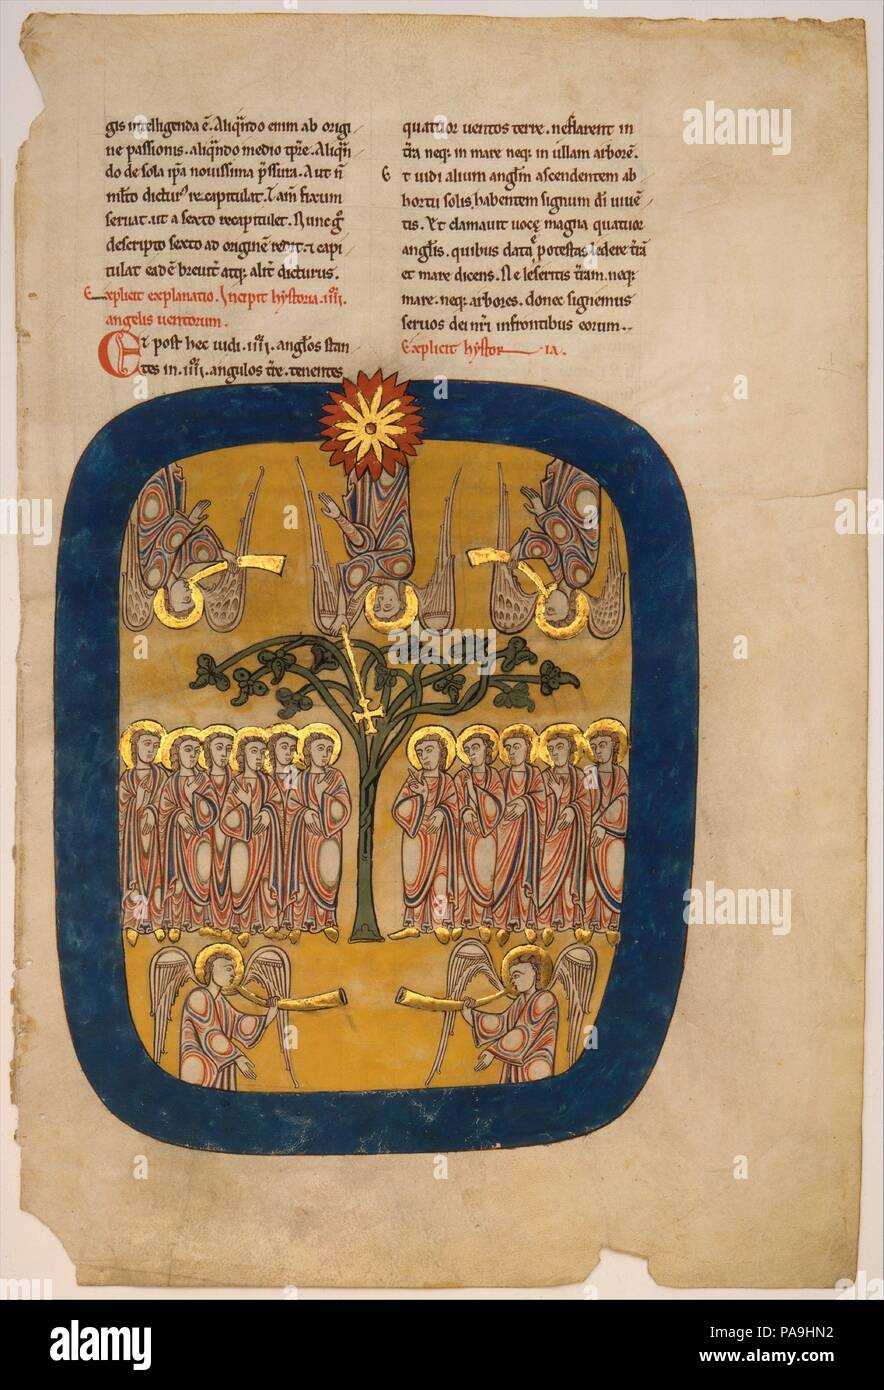 gis intelligenda ē. Aliqn̄do enim ab origi
ne passionis. aliqn̄do medio tp̄re. Aliqn̄
do de sola ip̄a nouissima p̄ssura. Aut n̄
ml̄to dictur᾽ recapitulat. I am fixum
seruat. ut a sexto recapitulet. Nunc gͦ
descripto sexto ad originē redit ⁊ capi
tulat eadē breuit̄ atq; alit̄ dicturus.
Explicit explanatio. Incipit hystoria .iiii.
angelis uentorum.
Et post hec uidi .iiii. angl̄os stan
tes in .iiii. angulos t̄re. tenentes
quatuor uentos terre. ne flarent in
t̄ra neq; in mare neq; in ullam arborē.
Et uidi alium angl̄m ascendentem ab
hortu solis, habentem signum dī uiuē
tis. Et clamauit uocę magna quatuor
angl̄is. quibus data ē potestas ledere t̄rā
et mare dicens. Ne leseritis t̄ram. neq;
mare. neq; arbores. donec signemus
seruos dei nr̄i in frontibus eorum.
Explicit hystoria.
alamy
PA9HN2
www.alamy.com